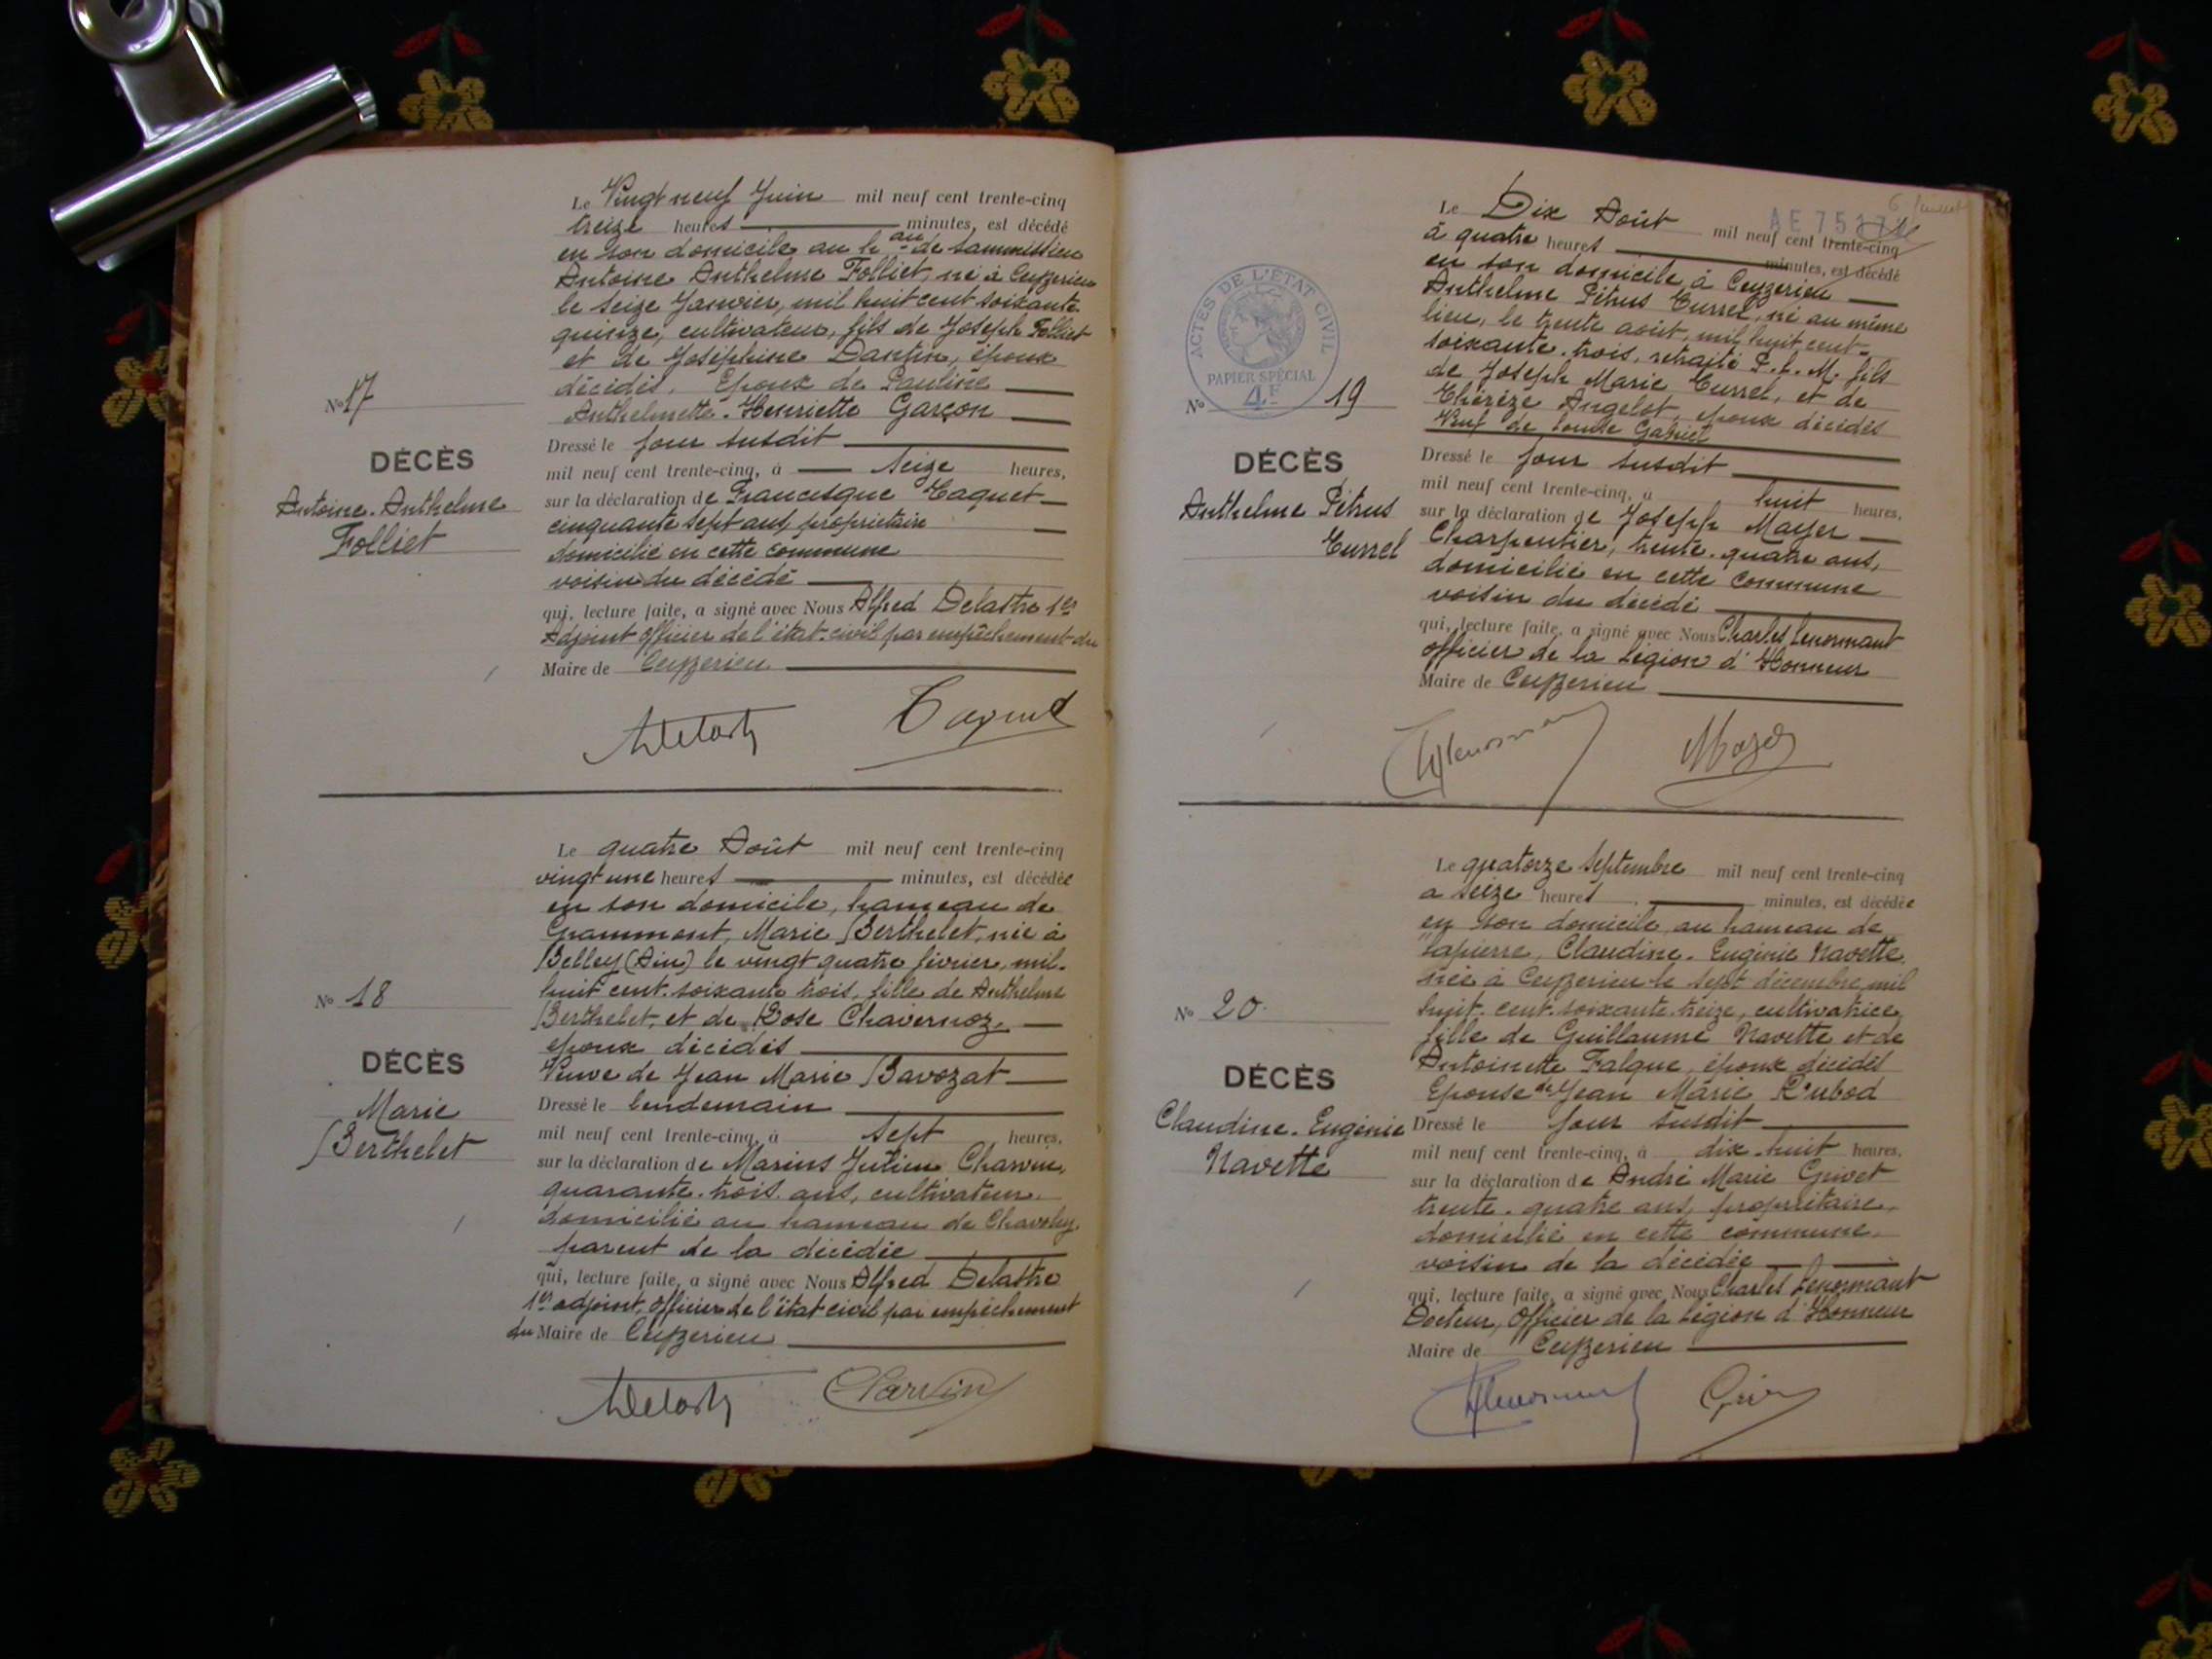 Le Vingt neuf Juin mil neuf cent trente-cinq
treize heures minutes, est décédé
en son domicile au h.au de Sammissieu
Antoine Anthelme Folliet, né à Ceyzerieu
le seize Janvier, mil huit cent soixante
quinze, cultivateur, fils de Joseph Folliet
et de Joséphine Dantin, époux
décédés. Epoux de Pauline
Anthelmette. Henriette Garçon
Nº 17
DÉCÈS
Antoine. Anthelme
Folliet
Dressé le jour susdit
mil neuf cent trente-cinq, à seize heures,
sur la déclaration de Francisque Taquet
cinquante sept ans, propriétaire
domicilié en cette commune
voisin du décédé
qui, lecture faite, a signé avec Nous Alfred Delastre 1er
Adjoint officier de l'état-civil par empêchement du
Maire de Ceyzerieu
Le quatre Août mil neuf cent trente-cinq
vingt une heures minutes, est décédée
en son domicile, hameau de
Grammont, Marie Berthelet, née à
Belley (Ain) le vingt quatre février, mil.
huit cent. soixante trois, fille de Anthelme
Berthelet, et de Rose Chavernoz,
époux décédés
Veuve de Jean Marie Bavozat
Nº 18
DÉCÈS
Marie
Berthelet
Dressé le lendemain
mil neuf cent trente-cinq, à sept heures,
sur la déclaration de Marius Julien Charvin,
quarante. trois. ans, cultivateur.
domicilié au hameau de Chavoley,
parent de la décédée
qui, lecture faite, a signé avec Nous Alfred Delastre
1er adjoint, officier de l'état civil par empêchement
du Maire de Ceyzerieu
Charvin
Le Dix Août mil neuf cent trente-cinq
à quatre heures minutes, est décédé
en son domicile, à Ceyzerieu
Anthelme Pétrus Turrel, né au même
lieu, le trente août, mil huit cent-
soixante. trois, retraité P. L. M. fils
de Joseph Marie Turrel, et de
Thérèze Angelot, époux décédés
Veuf de Louise Gabriel
ACTES DE L'ÉTAT CIVIL
PAPIER SPÉCIAL
4F
Nº 19
DÉCÈS
Anthelme Pétrus
Turrel
Dressé le jour susdit
mil neuf cent trente-cinq, à huit heures,
sur la déclaration de Joseph Mayer
Charpentier, trente. quatre ans,
domicilié en cette commune
voisin du décédé
qui, lecture faite, a signé avec Nous Charles Lenormant
officier de la Légion d'Honneur
Maire de Ceyzerieu
Le quatorze Septembre mil neuf cent trente-cinq
a seize heures minutes, est décédée
en son domicile au hameau de
Lapierre, Claudine. Eugénie Navette
née à Ceyzerieu le sept décembre, mil
huit. cent. soixante. treize, cultivatrice,
fille de Guillaume Navette et de
Antoinette Falque, époux décédés
Epouse de Jean Marie Rubod
Nº 20.
DÉCÈS
Claudine. Eugénie
Navette
Dressé le jour susdit
mil neuf cent trente-cinq, à dix-huit heures,
sur la déclaration de André Marie Grivet
trente. quatre ans, propriétaire,
domicilié en cette commune,
voisin de la décédée
qui, lecture faite, a signé avec Nous Charles Lenormant
Docteur, Officier de la Légion d'Honneur
Maire de Ceyzerieu